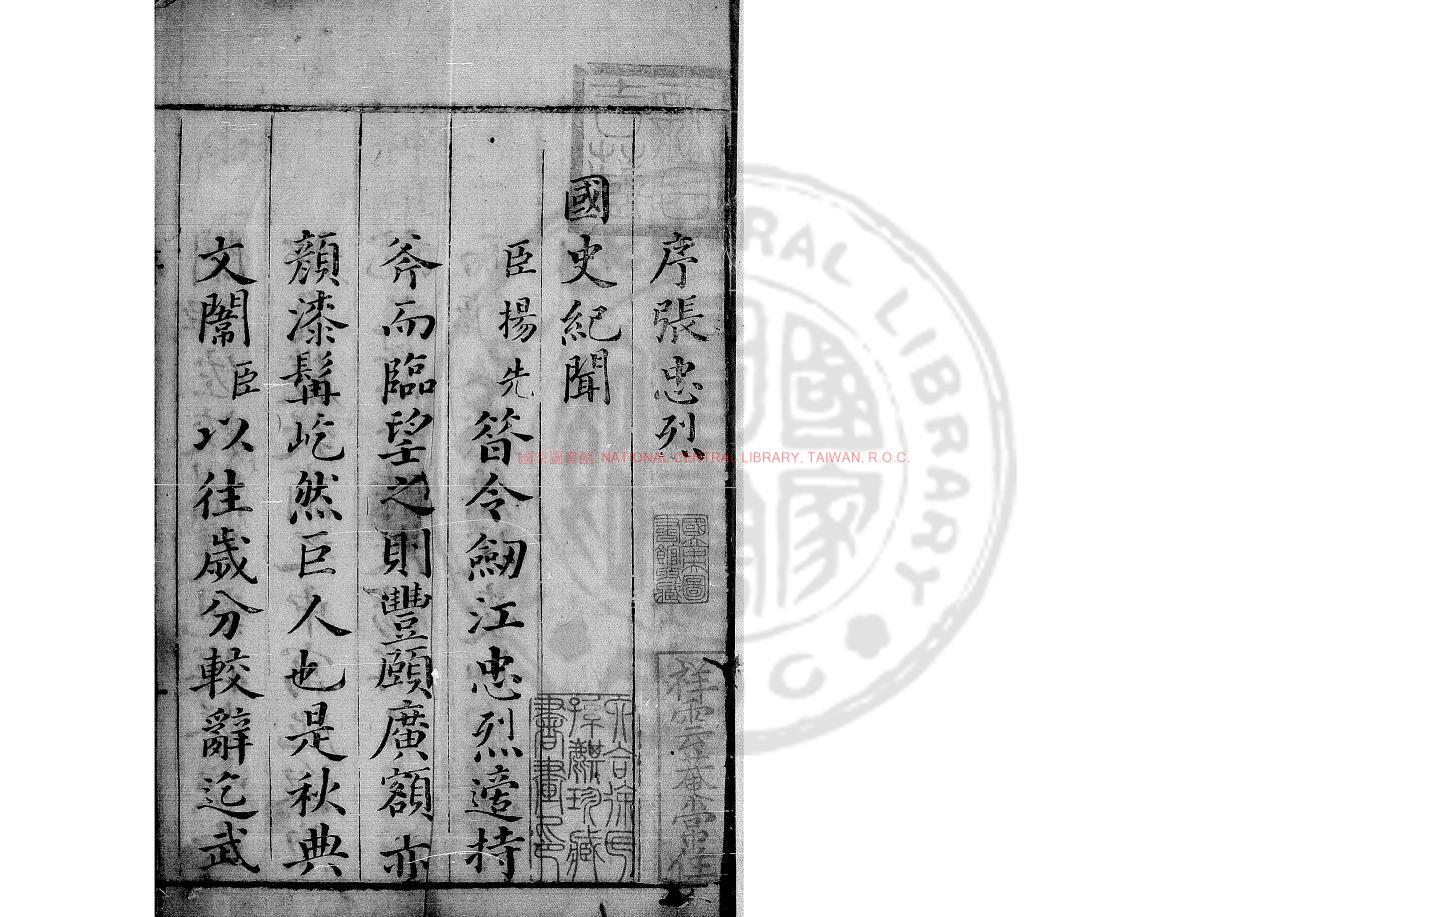 序張忠烈
國史紀聞
臣揚先簮令劒江忠烈遊持
斧而臨望之則豐頤廣額亦
顏漆髯屹然巨人也是秋典
文闈臣以往歲分較辭迄武
國家圖書館 NATIONAL CENTRAL LIBRARY, TAIWAN, R.O.C.
RAL LIBRARY
國家